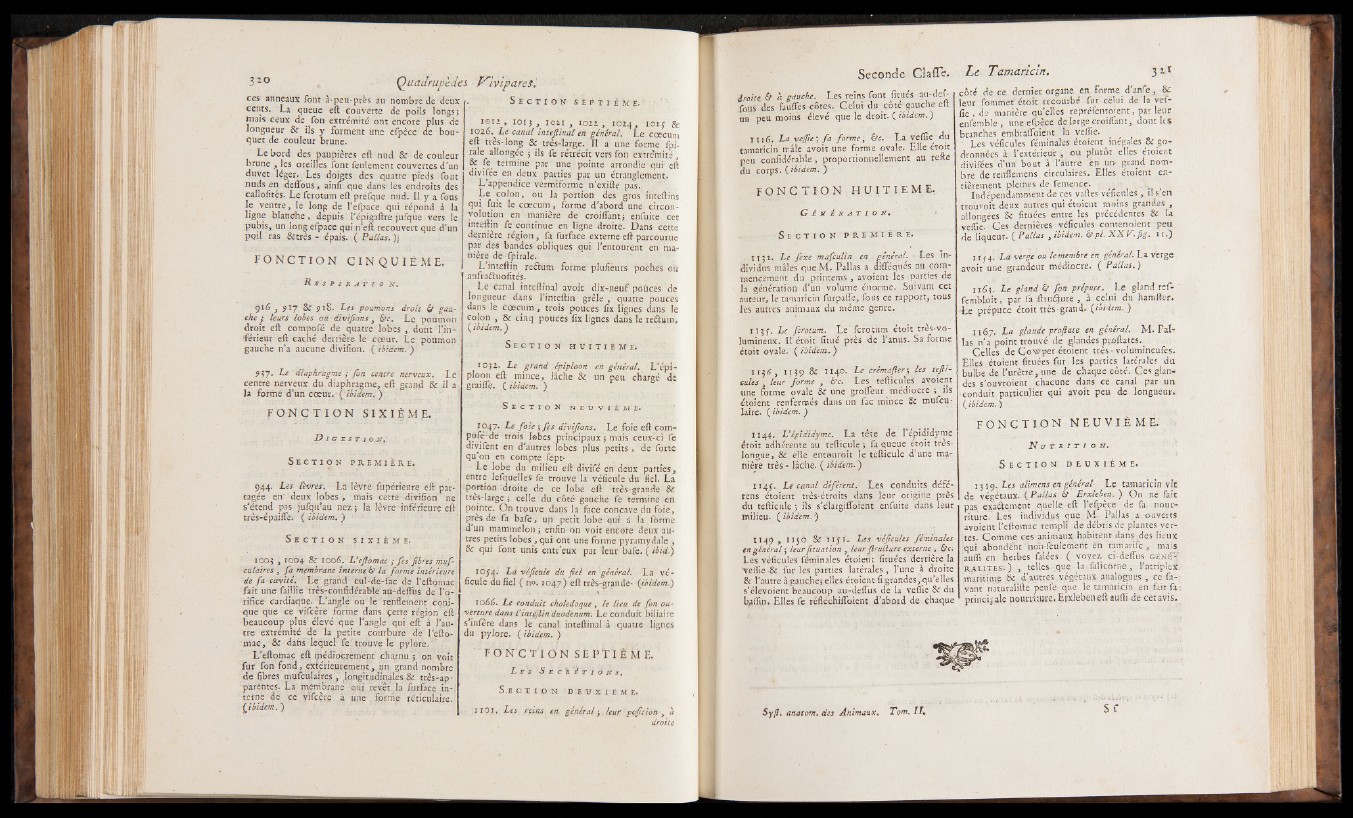 320 Quadrupèdes Vivipares.
ces anneaux font à-peu-près au nombre de deux
cents. La queue eft couverte de poils longs ;
mais ceux de fon extrémité ont encore plus de
longueur & ils y forment une efpèce de bou-
quet de couleur brune.
Le bord des paupières eft nud & de couleur
brune, les oreilles font feulement couvertes d'un
duvet léger. Les doigts des quatre pieds font
nuds en deffous, ainfi que dans les endroits des
callofités. Le fcrotum eft prefque nud. Il y a fous
le ventre, le long de l'efpace qui répond à la
ligne blanche, depuis l'épigaftre jufque vers le
pubis, un long efpace qui n'eft recouvert que d'un
poil ras & très - épais. ( Pallas. )
FONCTION CINQUIEME.
RESPIRATION.
916, 917 & 918. Les poumons droit & gau-
che ; leurs lobes ou divifions, &c. Le poumon
droit eft compofé de quatre lobes, dont l'in-
férieur eft caché derrière le cœur. Le poumon
gauche n'a aucune divifion. ( ibidem. )
937. Le diaphragme ; fon centre nerveux. Le
centre nerveux du diaphragme, eft grand & il a
la forme d'un cœur. ( ibidem. )
FONCTION SIXIÈME.
DIGESTION.
SECTION PREMIÈRE.
944. Les lèvres. La lèvre fupérieure eft par-
tagée en deux lobes, mais cette divifion ne
s'étend pas jufqu'au nez ; la lèvre inférieure eft
très-épaiffe. ( ibidem. )
SECTION SIXIÈME.
1003, 1004 & 1006. L'eftomac ; fes fibres muf-
culaires, fa membrane interne & la forme intérieure
de fa cavité. Le grand cul-de-fac de l'eftomac
fait une faillie très-confidérable au-deffus de l'o-
rifice cardiaque. L'angle ou le renflement coni-
que que ce vifcère forme dans cette région eft
beaucoup plus élevé que l'angle qui eft à l'au-
tre extrémité de la petite courbure de l'efto-
mac, & dans lequel fe trouve le pylore.
L'eftomac eft médiocrement charnu ; on voit
fur fon fond, extérieurement, un grand nombre
de fibres mufculaires, longitudinales & très-ap-
parentes. La membrane qui revêt la furface in-
terne de ce vifcère a une forme réticulaire.
( ibidem. )
SECTION SEPTIÈME.
1012, 1013, 1021, 1022, 1024, 1025 &
1026. Le canal inteftinal en général. Le cœcum
eft très-long & très-large. Il a une forme fpi-
rale allongée ; ils fe rétrécit vers fon extrémité,
& fe termine par une pointe arrondie qui eft
divifée en deux parties par un étranglement.
L'appendice vermiforme n'exifte pas.
Le colon, ou la portion des gros inteftins
qui fuit le cœcum, forme d'abord une circon-
volution en manière de croiffant ; enfuite cet
inteftin fe continue en ligne droite. Dans cette
dernière région, fa furface externe eft parcourue
par des bandes obliques qui l'entourent en ma-
nière de fpirale.
L'inteftin rectum forme plufieurs poches ou
anfractuofités.
Le canal inteftinal avoit dix-neuf pouces de
longueur dans l'inteftin grêle, quatre pouces
dans le cœcum, trois pouces fix lignes dans le
colon, & cinq pouces fix lignes dans le rectum.
( ibidem. )
SECTION HUITIEME.
1032. Le grand épiploon en général. L'épi-
ploon eft mince, lâche & un peu chargé de
graiffe. ( ibidem. )
SECTION NEUVIÈME.
1047. Le foie ; fes divifions. Le foie eft com-
pofé de trois lobes principaux ; mais ceux-ci fe
divifent en d'autres lobes plus petits, de forte
qu'on en compte fept.
Le lobe du milieu eft divifé en deux parties,
entre lefquelles fe trouve la véficule du fiel. La
portion droite de ce lobe eft très-grande &
très-large ; celle du côté gauche fe termine en
pointe. On trouve dans la face concave du foie,
près de fa bafe, un petit lobe qui a la forme
d'un mammelon ; enfin on voit encore deux au-
tres petits lobes, qui ont une forme pyramydale,
& qui font unis entr'eux par leur bafe. ( ibid. )
1054. La véficule du fiel en général. La vé-
ficule du fiel ( no. 1047 ) eft très-grande. (ibidem.)
1066. Le conduit choledoque, le lieu de fon ou-
verture dans l'inteftin duodenum. Le conduit biliaire
s'infère dans le canal inteftinal à quatre lignes
du pylore. ( ibidem. )
FONCTION SEPTIÈME.
LES SECRÉTIONS.
SECTION DEUXIEME.
1101. Les reins en général ; leur pofition, à
droite
Seconde Claffe. Le Tamaricin. 321
droite & à gauche. Les reins font fitués au-def-
fous des fauffes côtes. Celui du côté gauche eft
un peu moins élevé que le droit. ( ibidem. )
1116. La veffie ; fa forme, &c. La veffie du
tamaricin mâle avoit une forme ovale. Elle étoit
peu confidérable, proportionnellement au refte
du corps. ( ibidem. )
FONCTION HUITIEME.
GÉNÉRATION.
SECTION PREMIERE.
1131. Le fexe mafculin en général. Les in-
dividus mâles que M. Pallas a difféqués au com-
mencement du printems, avoient les parties de
la génération d'un volume énorme. Suivant cet
auteur, le tamaricin furpaffe, fous ce rapport, tous
les autres animaux du même genre.
1135. Le fcrotum. Le fcrotum étoit très-vo-
lumineux. Il étoit fitué près de l'anus. Sa forme
étoit ovale. ( ibidem. )
1136, 1139 & 1140. Le crémafter ; les tefti-
cules, leur forme, &c. Les tefticules avoient
une forme ovale & une groffeur médiocre ; ils
étoient renfermés dans un fac mince & mufcu-
laire. ( ibidem. )
1144. L'épididyme. La tête de l'épididyme
étoit adhérente au tefticule ; fa queue étoit très-
longue, & elle entouroit le tefticule d'une ma-
nière très - lâche. ( ibidem. )
1145. Le canal déférent. Les conduits défé-
rens étoient très-étroits dans leur origine près
du tefticule ; ils s'élargiffoient enfuite dans leur
milieu. ( ibidem. )
1149, 1150 & 1151. Les véficules féminales
en général ; leur fituation, leur ftructure externe, &c.
Les véficules féminales étoient fituées derrière la
veffie & fur les parties latérales, l'une à droite
& l'autre à gauche ; elles étoient fi grandes, qu'elles
s'élevoient beaucoup au-deffus de la veffie & du
baffin. Elles fe réfléchiffoient d'abord de chaque
côté de ce dernier organe en forme d'anfe, &
leur fommet étoit recourbé fur celui de la vef-
fie, de manière qu'elles repréfentoient, par leur
enfemble, une efpèce de large croiffant, dont les
branches embraffoient la veffie.
Les véficules féminales étoient inégales & go-
dronnées à l'extérieur, ou plutôt elles étoient
divifées d'un bout à l'autre en un grand nom-
bre de renflemens circulaires. Elles étoient en-
tièrement pleines de femence.
Indépendamment de ces vaftes véficules, il s'en
trouvoit deux autres qui étoient moins grandes,
allongées & fituées entre les précédentes & la
veffie. Ces dernières véficules contenoient peu
de liqueur. ( Pallas, ibidem. & pl. XXV. fig. 11. )
1154. La verge ou le membre en général. La verge
avoit une grandeur médiocre. ( Pallas. )
1163. Le gland & fon prépuce. Le gland ref-
fembloit, par fa ftructure, à celui du hamfter.
Le prépuce étoit très-grand. ( ibidem. )
1167. La glande proftate en général. M. Pal-
las n'a point trouvé de glandes proftates.
Celles de Cowper étoient très-volumineufes.
Elles étoient fituées fur les parties latérales du
bulbe de l'urètre, une de chaque côté. Ces glan-
des s'ouvroient chacune dans ce canal par un
conduit particulier qui avoit peu de longueur.
( ibidem. )
FONCTION NEUVIÈME.
NUTRITION.
SECTION DEUXIÈME.
1319. Les alimens en général. Le tamaricin vit
de végétaux. ( Pallas & Erxleben. ) On ne fait
pas exactement quelle eft l'efpèce de fa nour-
riture. Les individus que M. Pallas a ouverts
avoient l'eftomac rempli de débris de plantes ver-
tes. Comme ces animaux habitent dans des lieux
qui abondent non-feulement en tamarifc, mais
auffi en herbes falées ( voyez ci-deffus GÉNÉ-
RALITÉS. ), telles que la falicorne, l'atriplex
maritime & d'autres végétaux analogues, ce fa-
vant naturalifte penfe que le tamaricin en fait fa
principale nourriture. Erxleben eft auffi de cet avis.
Syft. anatom. des Animaux. Tom. II. S f